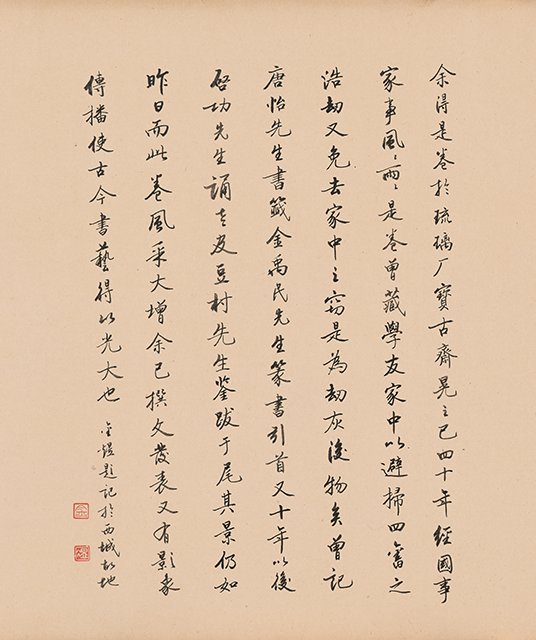 余得是卷於琉璃厂寶古齋晃之已四十年經國事
家事風風雨雨是卷曾藏學友家中以避掃四舊之
浩劫又免去家中之竊是為劫灰後物矣曾記
唐怡先生書籤金禹民先生篆書引首又十年以後
啓功先生誦 皮豆村先生鉴跋于尾其景仍如
昨日而此卷風采大增余已撰文發表又有影象
傳播使古今書藝得以光大也
金煜題記於西城故地